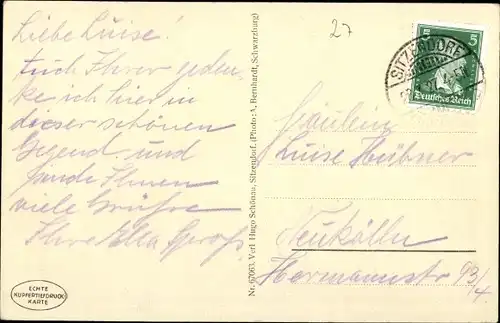 Liebe Luise!
Auch Ihrer geden-
ke ich hier in
dieser schönen
Gegend und
sende Ihnen
viele Grüße
Ihre Ella Groß.
ECHTE
KUPFERTIEFDRUCK
KARTE
Nr. 67063. Verl. Hugo Schönau, Sitzendorf. (Photo: A. Bernhardt, Schwarzburg)
27
5 5
Deutsches Reich
SITZENDORF
Fräulein
Luise Hübner
Neukölln
Hermannstr 93/4.